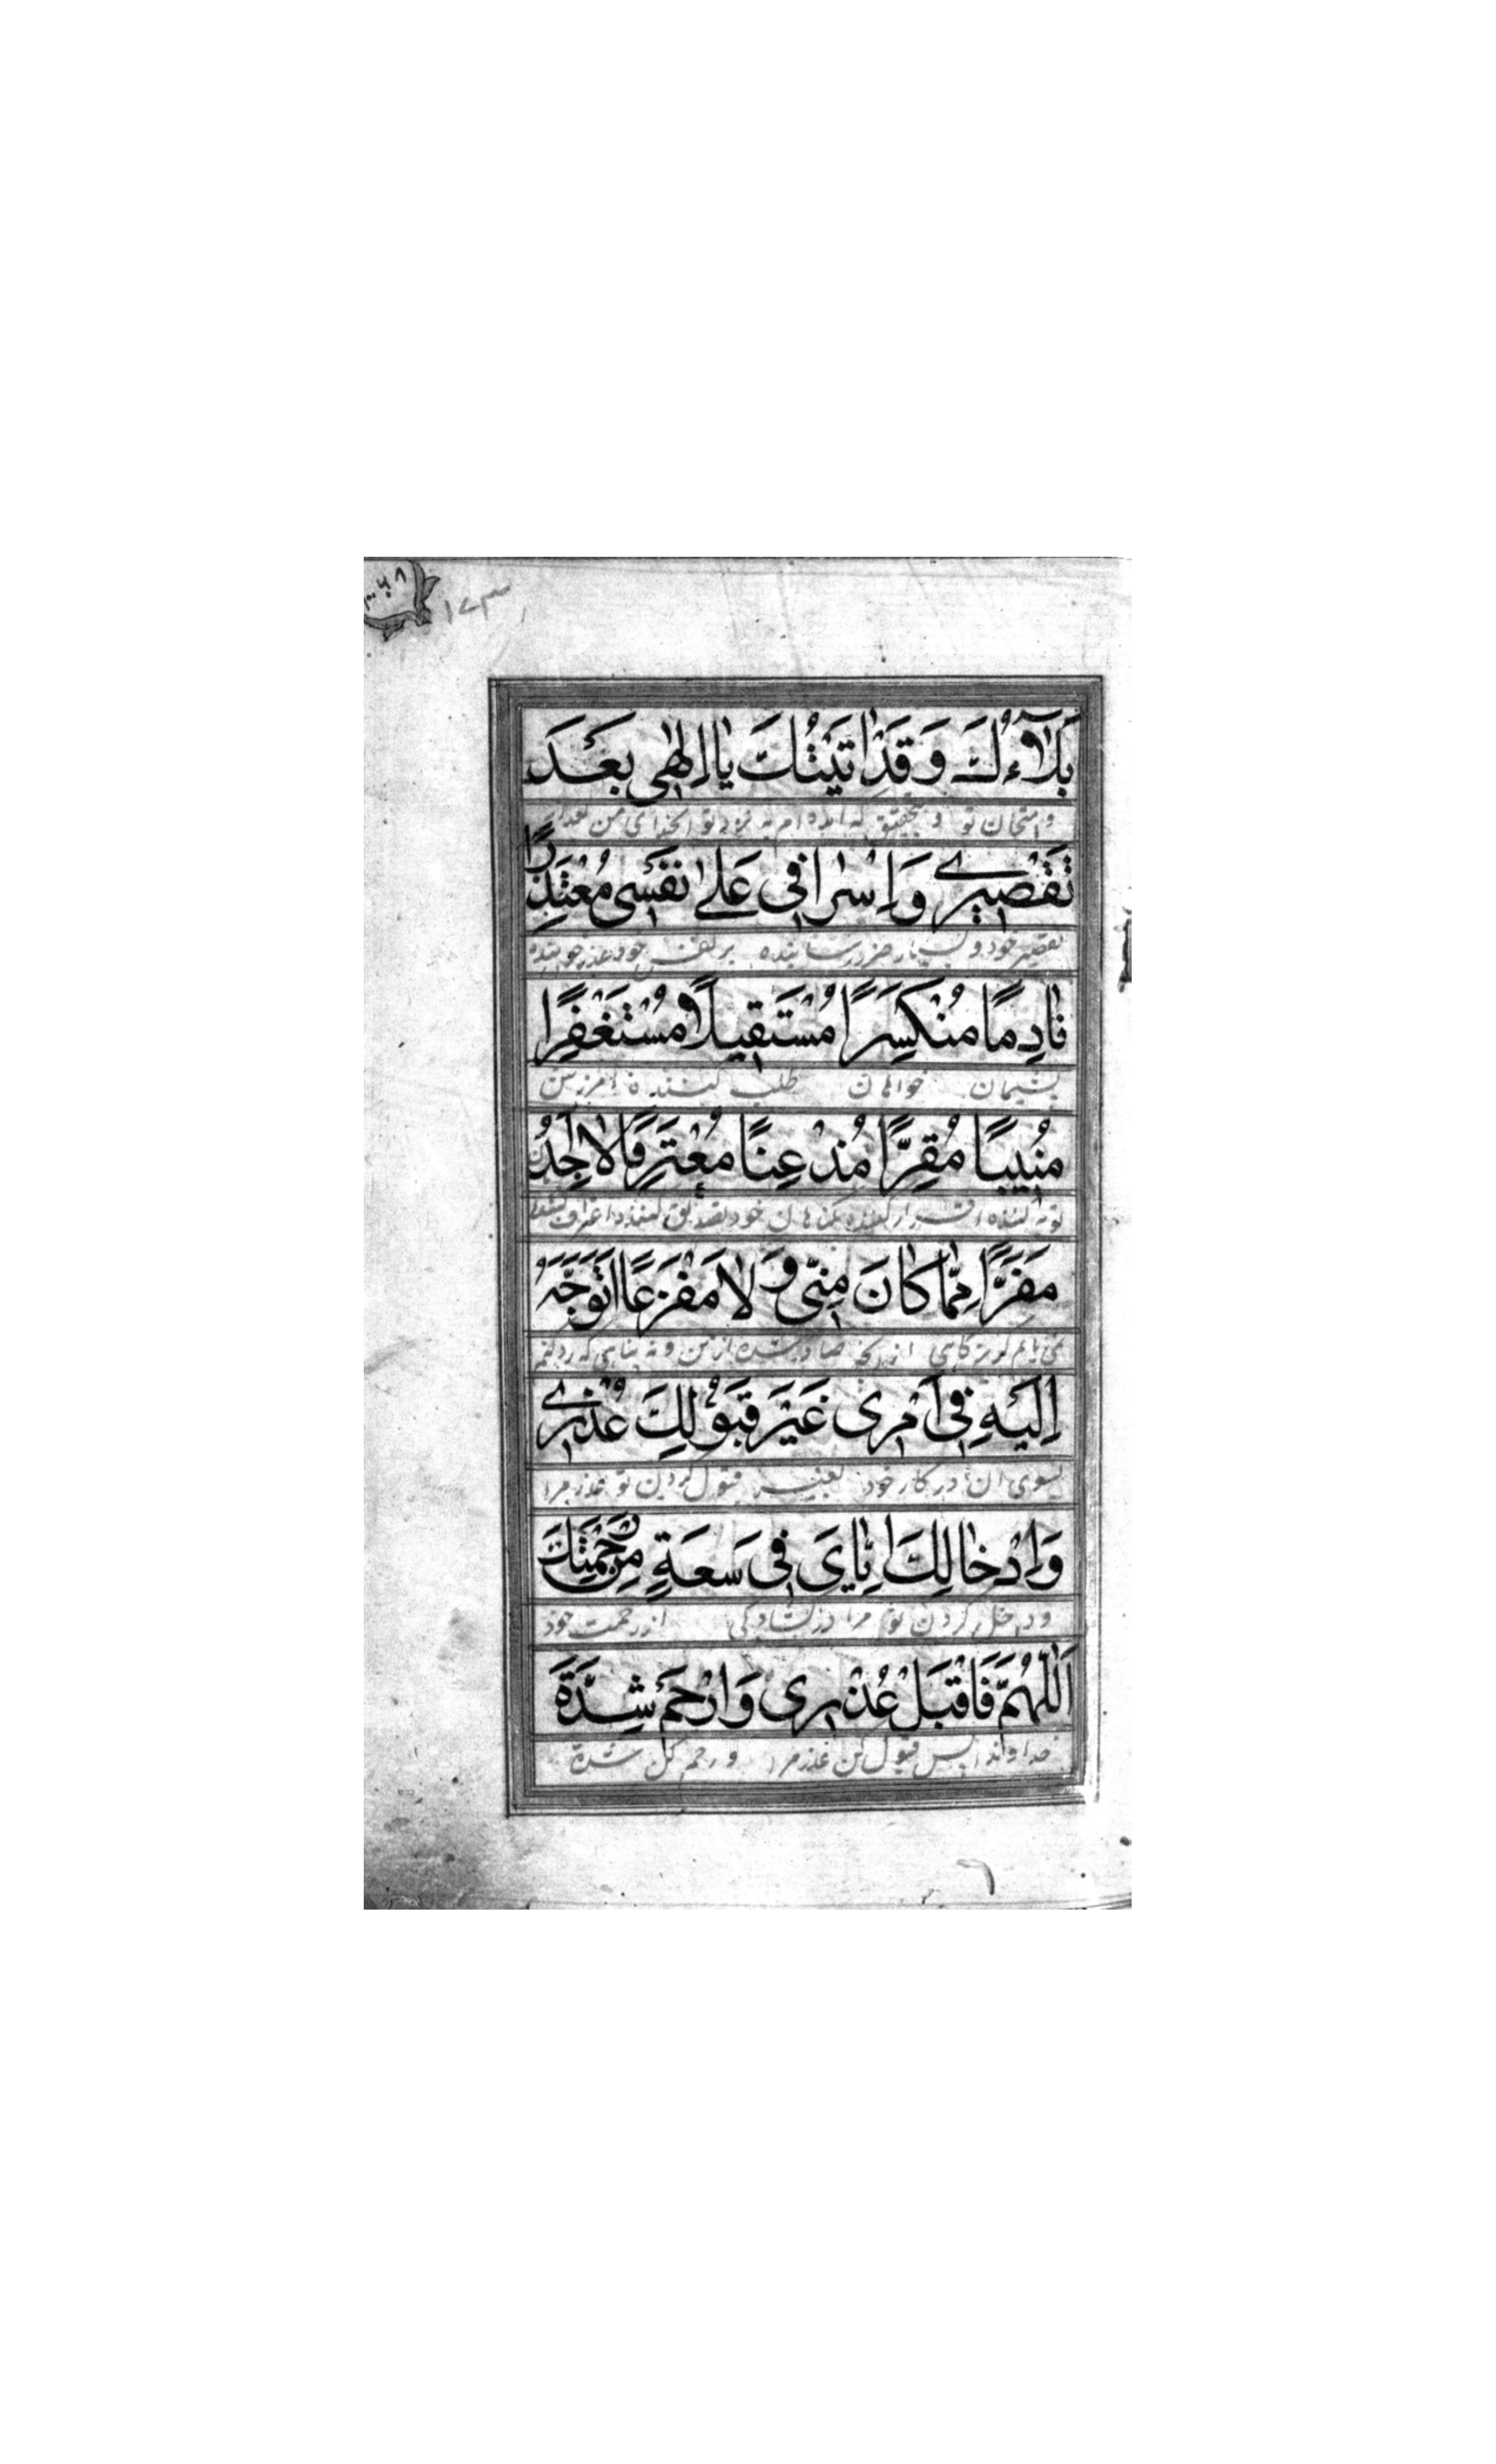 ١٧٣
بَلَاۤءُكَ وَقَدْ اَتَيْتُكَ يَا اِلٰهِى بَعْدَ
وامتحان تو و بتحقیق که آمده ام به نزد تو ایخدای من بعد از
تَقْصِيرِى وَاِسْرَافِى عَلٰى نَفْسِى مُعْتَذِرًا
تقصیر خود و بسیار ضرر رساننده بر نفس خود عذر خواهنده
نَادِمًا مُنْكَسِرًا مُسْتَقِيلًا مُسْتَغْفِرًا
پشیمان خواهان طلب کننده امرزش
مُنِيبًا مُقِرًّا مُذْعِنًا مُعْتَرِفًا لَا اَجِدُ
توبه کننده اقرار کننده بگناهان خود تصدیق کننده اعتراف کننده
مَفَرًّا مِمَّا كَانَ مِنِّى وَلَا مَفْزَعًا اَتَوَجَّهُ
نمی یابم گریزگاهی از آنچه صادر شده از من و نه پناهی که رو کنم
اِلَيْهِ فِى اَمْرِى غَيْرَ قَبُولِكَ عُذْرِى
بسوی ان در کار خود بغیر قبول کردن تو عذر مرا
وَاِدْخَالِكَ اِيَّاىَ فِى سَعَةٍ مِنْ رَحْمَتِكَ
و داخل کردن تو مرا در گشادگی از رحمت خود
اَللّٰهُمَّ فَاقْبَلْ عُذْرِى وَارْحَمْ شِدَّةَ
خداوندا پس قبول کن عذر مرا و رحم کن شدة